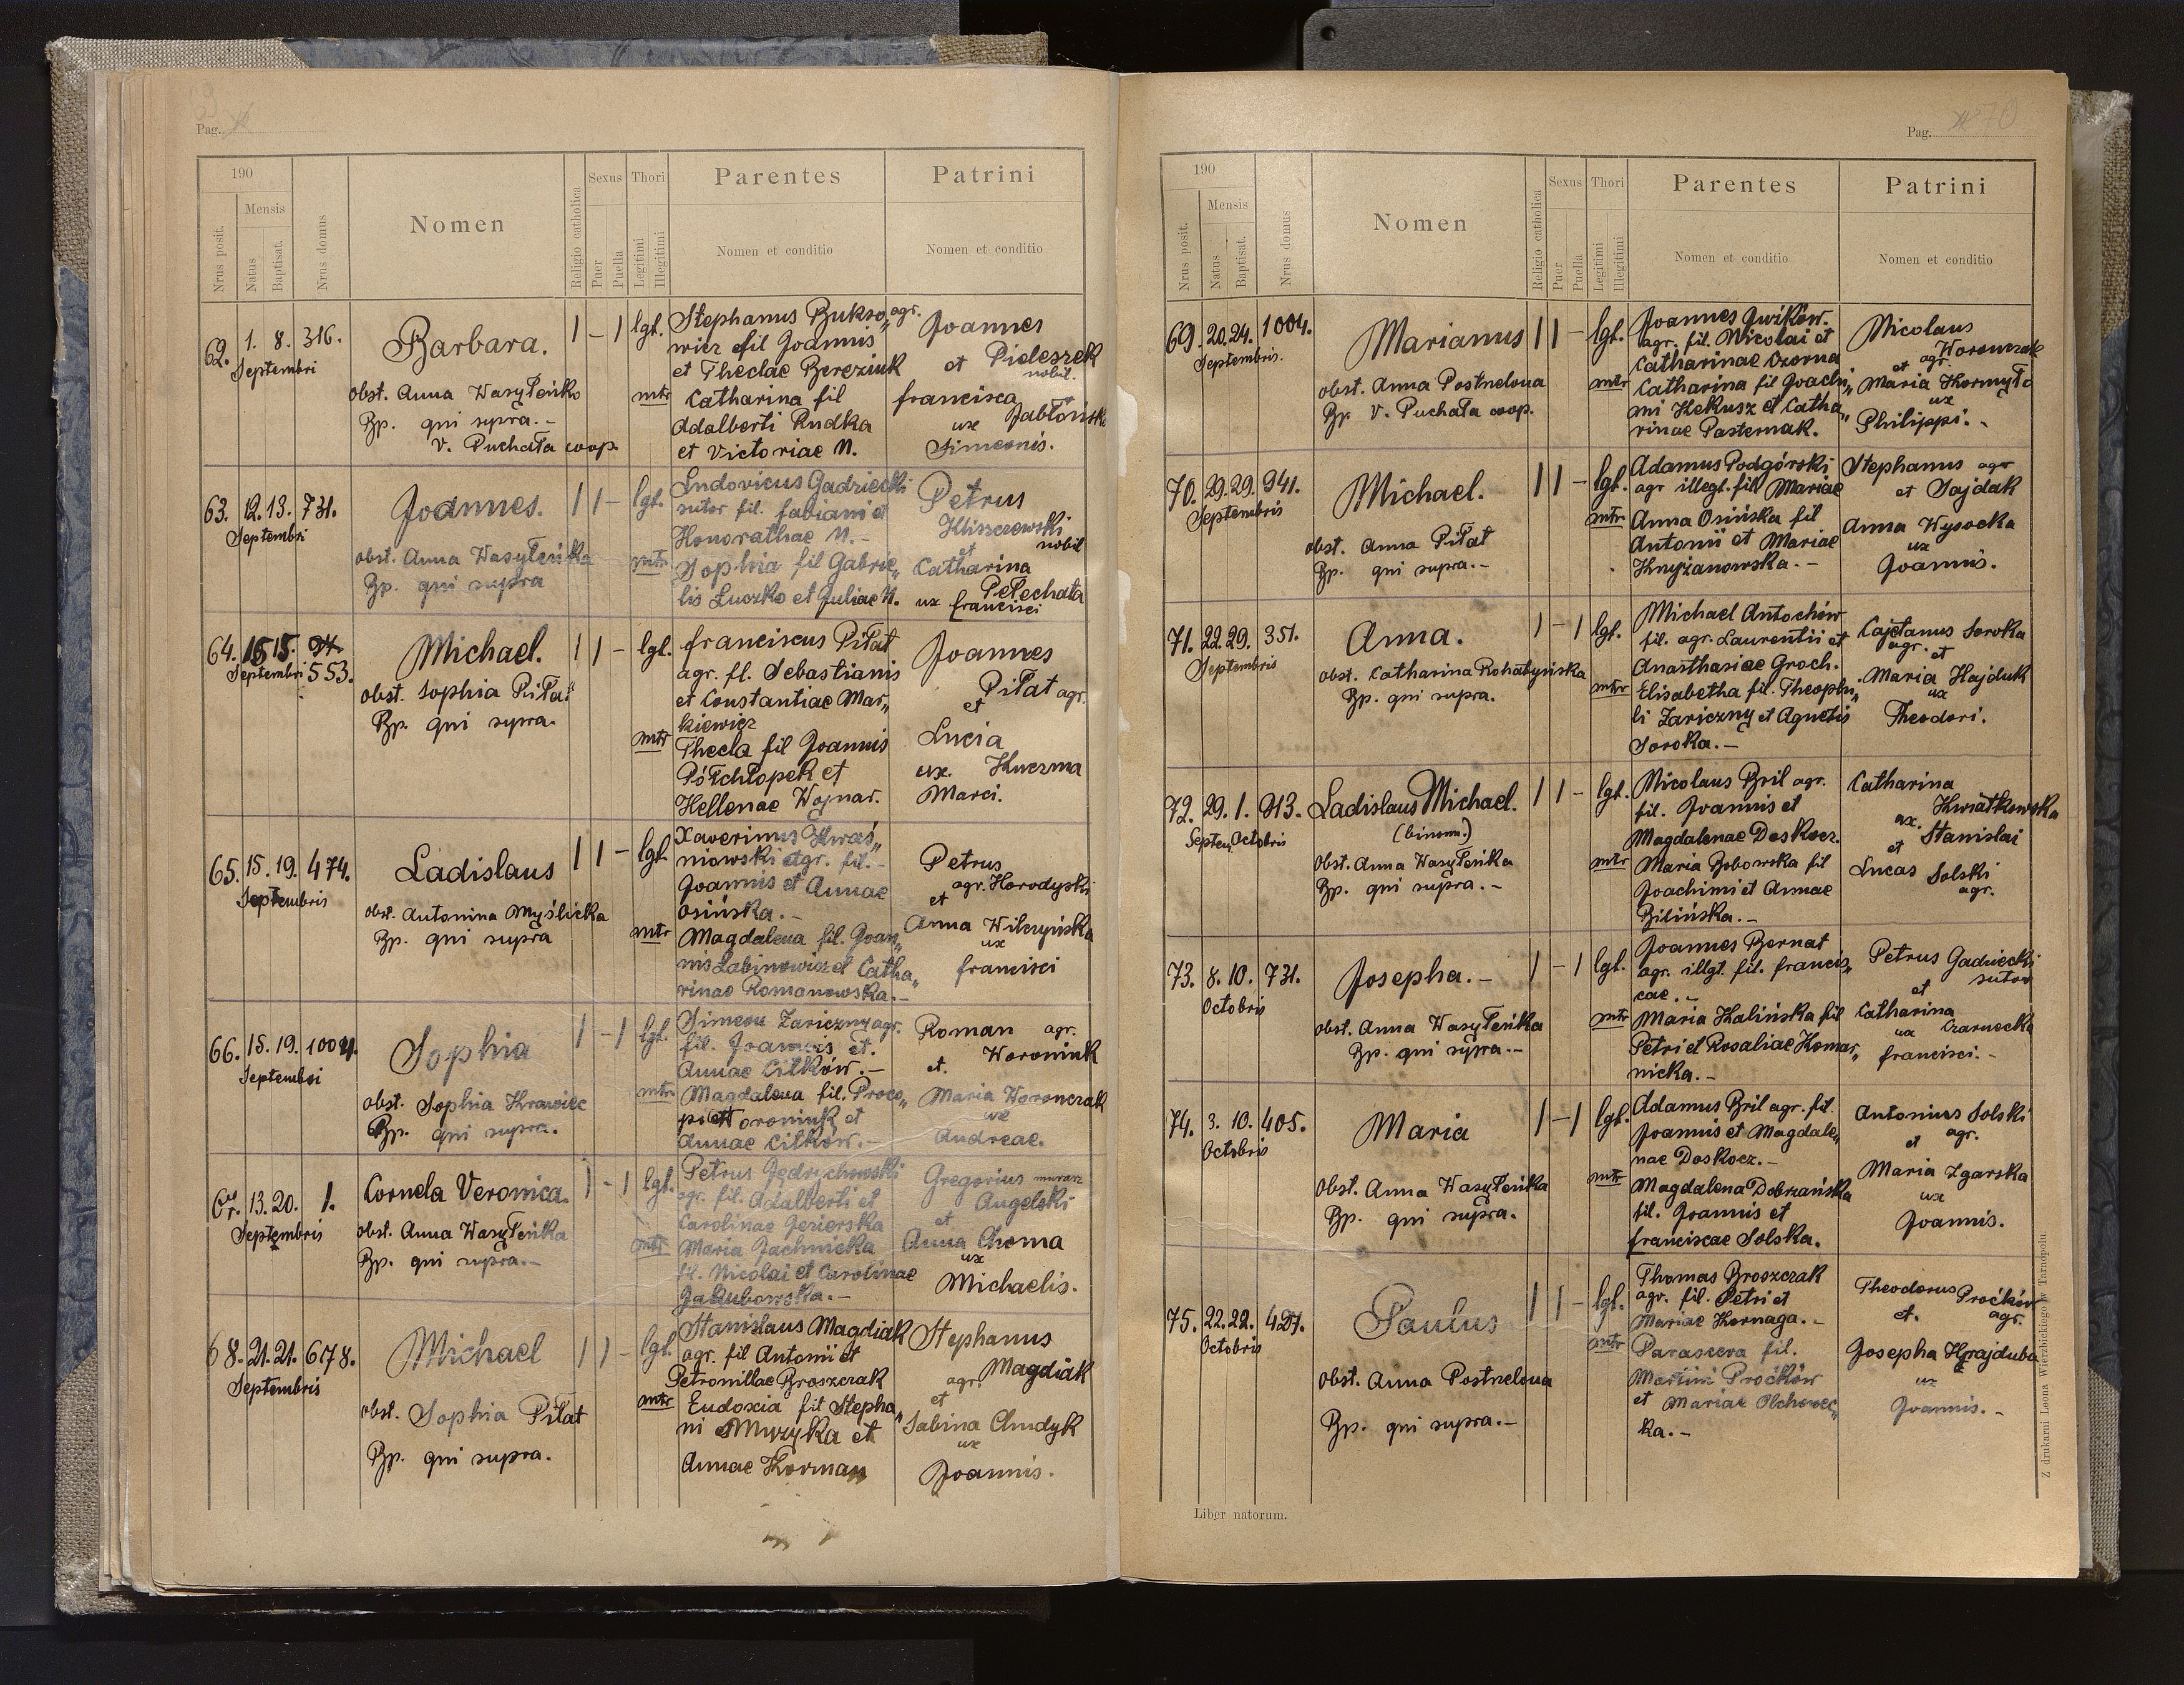 Pag.
190
Mensis
Nrus posit.
Natus
Baptisat.
Nrus domus
Nomen
Religio catholica
Sexus
Puer
Puella
Thori
Legitimi
Illegitimi
Parentes
Nomen et conditio
Patrini
Nomen et conditio
62. 1. 8. 316.
Septembri
Barbara.
obst. Anna Wasyłeńko
Bp. qui supra.-
V. Puchała coop.
1 - 1 lgt.
Stephanus Bukso„ agr.
wicz fil Joannis
et Theclae Bereziuk
mtr Catharina fil
Adalberti Rudka
et Victoriae N.
Joannes
et Pideszek
nobil.
francisca
Jabłońska
ux
Simeonis.
63. 12. 13. 731.
Septembri
Joannes.
obst. Anna Wasyłeńka
Bp. qui supra
1 1 - lgt.
Ludovicus Gadziecki
sutor fil. fabiani et
Honorathae N.-
mtr Sophia fil Gabrie„
lis Luczko et Juliae N.
Petrus
Kliszczowski
nobil
et
Catharina
Pełechata
ux francisci
64. 15. 15.
Septembri 553.
Michael.
obst. Sophia Piłat
Bp. qui supra.
1 1 - lgt.
franciscus Piłat
agr. fl. Sebastianis
et Constantiae Mar„
kiewicz
mtr Thecla fil Joannis
Półchłopek et
Hellenae Wojnar.
Joannes
Piłat agr.
et
Lucia
ux. Kuczma
Marci.
65. 15. 19. 474.
Septembris
Ladislaus
obst. Antonina Myślicka
Bp. qui supra
1 1 - lgt.
Xaverinus Kwaś„
niowski agr. fil.-
Joannis et Annae
Osińska.-
mtr Magdalena fil. Joan„
nis Labinowicz et Catha„
rinae Romanowska.-
Petrus
agr. Horodyski
et
Anna Wilczyńska
ux
francisci
66. 15. 19. 1004.
Septembri
Sophia
obst. Sophia Krawiec
Bp. qui supra.
1 - 1 lgt.
Simeon Zariczny agr.
fil. Joannis et.
Annae Citków.-
mtr Magdalena fil. Proco„
pi Woroniuk et
Annae Citków.-
Roman agr.
Woroniuk
et.
Maria Woronczak
ux
Andreae.
67. 13. 20. 1.
Septembris
Cornela Veronica.
obst. Anna Wasyłeńka
Bp. qui supra.-
1 - 1 lgt.
Petrus Jędrychowski
agr. fil. Adalberti et
Carolinae Jezierska
mtr Maria Jachnicka
fil. Nicolai et Carolinae
Jakubowska.-
Gregorius murarz
Angelski
et
Anna Choma
ux
Michaelis.
68. 21. 21. 678.
Septembris
Michael
obst. Sophia Piłat
Bp. qui supra.
1 1 - lgt.
Stanislaus Magdiak
agr. fil Antonii et
Petronillae Broszczak
mtr Eudoxia fil Stepha„
ni Muzyka et
Annae Korman
Stephanus
Magdiak
agr.
et
Sabina Chudyk
ux
Joannis.
Pag. 70
190
Mensis
Nrus posit.
Natus
Baptisat.
Nrus domus
Nomen
Religio catholica
Sexus
Puer
Puella
Thori
Legitimi
Illegitimi
Parentes
Nomen et conditio
Patrini
Nomen et conditio
69. 20. 24. 1004.
Septembris.
Marianus
obst. Anna Postnelova
Bp. V. Puchała coop.
1 1 - lgt.
Joannes Ćwików.
agr. fil. Nicolai et
Catharinae Ozorna
mtr Catharina fil Joachi„
mi Kekusz et Catha„
rinae Pasternak.
Nicolaus
Woronczak
et agr.
Maria Kormyło
ux
Philippi.-
70. 29. 29. 941.
Septembris
Michael.
obst. Anna Piłat
Bp. qui supra.-
1 1 - lgt.
Adamus Podgórski
agr illegt. fil Mariae
mtr Anna Osińska fil
Antonii et Mariae
Knyżanowska.-
Stephanus agr
et Sajdak
Anna Wysocka
ux
Joannis.
71. 22. 29. 351.
Septembris
Anna.
obst. Catharina Rohatyńska
Bp. qui supra.
1 - 1 lgt.
Michael Antochów
fil. agr. Laurentii et
Anasthasiae Groch.
mtr Elisabetha fil. Theophi„
li Zariczny et Agnetis
Soroka.-
Cajetanus Soroka
agr. et
Maria Hajduk
ux
Theodori.
72. 29. 1. 913.
Septem. Octobris
Ladislaus Michael.
(binom.)
obst. Anna Wasyłeńka
Bp. qui supra.-
1 1 - lgt.
Nicolaus Bril agr.
fil. Joannis et
Magdalenae Doskocz.
mtr Maria Bobowska fil
Joachimi et Annae
Bilińska.-
Catharina
Kwiatkowska
ux. Stanislai
et
Lucas Solski
agr.
73. 8. 10. 731.
Octobris
Josepha.-
obst. Anna Wasyłeńka
Bp. qui supra.-
1 - 1 lgt.
Joannes Bernat
agr. illgt. fil. francis„
cae.-
mtr Maria Kalińska fil
Petri et Rosaliae Komar„
nicka.-
Petrus Gadziecki
sutor
et
Catharina
ux Czarnecka
francisci.-
74. 3. 10. 405.
Octobris
Maria
obst. Anna Wasyłeńka
Bp. qui supra.
1 - 1 lgt.
Adamus Bril agr. fil.
Joannis et Magdale„
nae Doskocz.-
mtr Magdalena Dobrzańska
fil. Joannis et
franciscae Solska.
Antonius Solski
et agr.
Maria Zgarska
ux
Joannis.
75. 22. 22. 427.
Octobris
Paulus
obst. Anna Postnelova
Bp. qui supra.-
1 1 - lgt.
Thomas Broszczak
agr. fil. Petri et
Mariae Kornaga.-
mtr Parascera fil.
Martini Proćków
et Mariae Olchowec„
ka.-
Theodorus Proćków
et. agr.
Josepha Hrajduba
ux
Joannis.-
Liber natorum.
Z drukarni Leona Wierzbickiego w Tarnopolu.